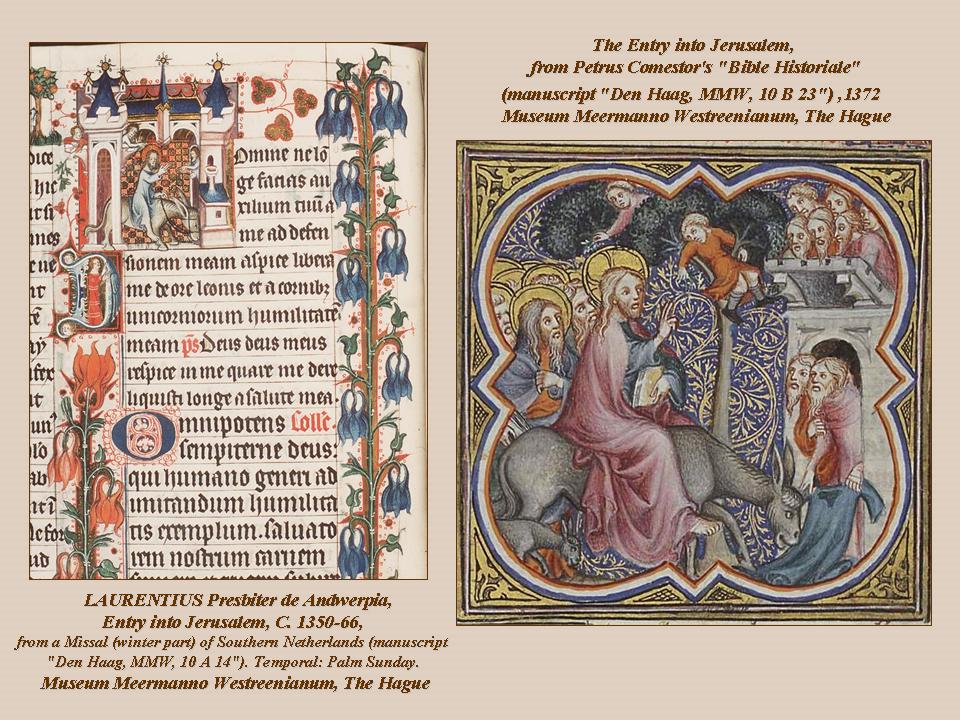 Domine ne lō
ge facias au
xilium tuū a
me ad defen
sionem meam aspice libera
me de ore leonis et a cornibz
unicorniorum humilitatē
meam ps Deus deus meus
respice in me quare me dere
liquisti longe a salute mea.
Omnipotens Colle.
sempiterne deus:
qui humano generi ad
imitandum humilita
tis exemplum. saluato
rem nostrum carnem
LAURENTIUS Presbiter de Andwerpia,
Entry into Jerusalem, C. 1350-66,
from a Missal (winter part) of Southern Netherlands (manuscript
"Den Haag, MMW, 10 A 14"). Temporal: Palm Sunday.
Museum Meermanno Westreenianum, The Hague
The Entry into Jerusalem,
from Petrus Comestor's "Bible Historiale"
(manuscript "Den Haag, MMW, 10 B 23") ,1372
Museum Meermanno Westreenianum, The Hague